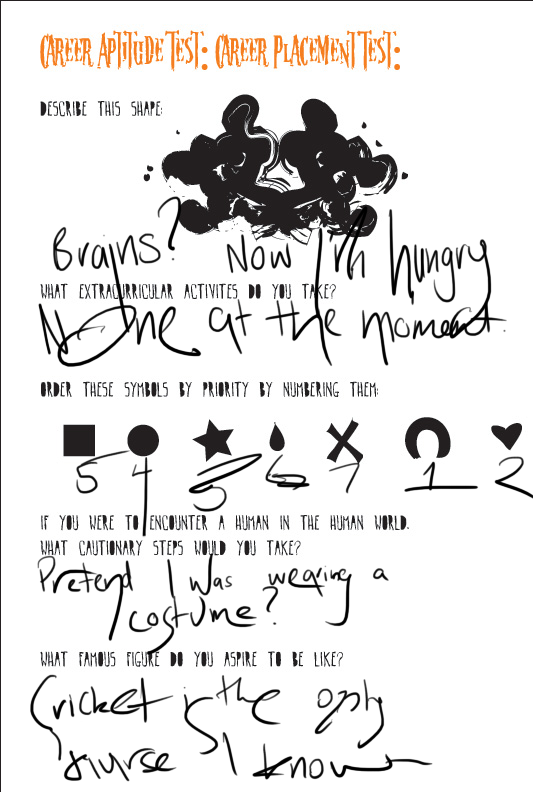 CAREER APTITUDE TEST: CAREER PLACEMENT TEST:
DESCRIBE THIS SHAPE:
Brains? Now I'm hungry
WHAT EXTRACURRICULAR ACTIVITES DO YOU TAKE?
None at the moment.
ORDER THESE SYMBOLS BY PRIORITY BY NUMBERING THEM:
5 4 7 1 2
IF YOU WERE TO ENCOUNTER A HUMAN IN THE HUMAN WORLD.
WHAT CAUTIONARY STEPS WOULD YOU TAKE?
Pretend I was wearing a
costume?
WHAT FAMOUS FIGURE DO YOU ASPIRE TO BE LIKE?
Cricket is the only
nurse I know